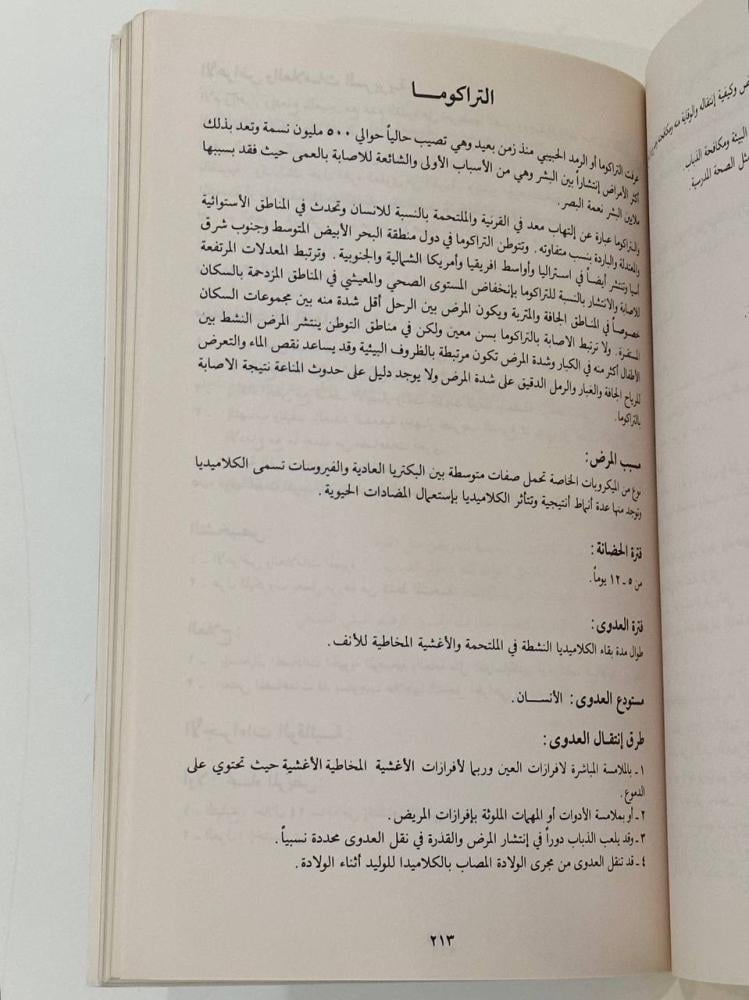 التراكومـــا
عرفت التراكوما أو الرمد الحبيبي منذ زمن بعيد وهي تصيب حالياً حوالي ٥٠٠ مليون نسمة وتعد بذلك
أكثر الأمراض إنتشاراً بين البشر وهي من الأسباب الأولى والشائعة للاصابة بالعمى حيث فقد بسببها
ملايين البشر نعمة البصر.
والتراكوما عبارة عن إلتهاب معد في القرنية والملتحمة بالنسبة للانسان وتحدث في المناطق الأستوائية
والمعتدلة والباردة بنسب متفاوته. وتتوطن التراكوما في دول منطقة البحر الأبيض المتوسط وجنوب شرق
آسيا وتنتشر أيضاً في استراليا وأواسط افريقيا وأمريكا الشمالية والجنوبية. وترتبط المعدلات المرتفعة
للاصابة والانتشار بالنسبة للتراكوما بإنخفاض المستوى الصحي والمعيشي في المناطق المزدحمة بالسكان
خصوصاً في المناطق الجافة والمتربة ويكون المرض بين الرحل أقل شدة منه بين مجموعات السكان
المستقرة. ولا ترتبط الاصابة بالتراكوما بسن معين ولكن في مناطق التوطن ينتشر المرض النشط بين
الأطفال أكثر منه في الكبار وشدة المرض تكون مرتبطة بالظروف البيئية وقد يساعد نقص الماء والتعرض
للرياح الجافة والغبار والرمل الدقيق على شدة المرض ولا يوجد دليل على حدوث المناعة نتيجة الاصابة
بالتراكوما.
مسبب المرض:
نوع من الميكروبات الخاصة تحمل صفات متوسطة بين البكتريا العادية والفيروسات تسمى الكلاميديا
وتوجد منها عدة أنماط أنتيجية وتتأثر الكلاميديا بإستعمال المضادات الحيوية.
فترة الحضانة:
من ٥-١٢ يوماً.
فترة العدوى:
طوال مدة بقاء الكلاميديا النشطة في الملتحمة والأغشية المخاطية للأنف.
مستودع العدوى: الأنســان.
طرق إنتقـال العدوى:
١- بالملامسة المباشرة لافرازات العين وربما لأفرازات الأغشية المخاطية الأغشية حيث تحتوي على
الدموع.
٢- أو بملامسة الأدوات أو المهمات الملوثة بإفرازات المريض.
٣- وقد يلعب الذباب دوراً في إنتشار المرض والقذرة في نقل العدوى محددة نسبياً.
٤- قد تنقل العدوى من مجرى الولادة المصاب بالكلاميدا للوليد أثناء الولادة.
٢١٣
ض وكيفية إنتقاله والوقاية منه ومكافحته
البيئة ومكافحة الذباب.
مثل الصحة المدرسية